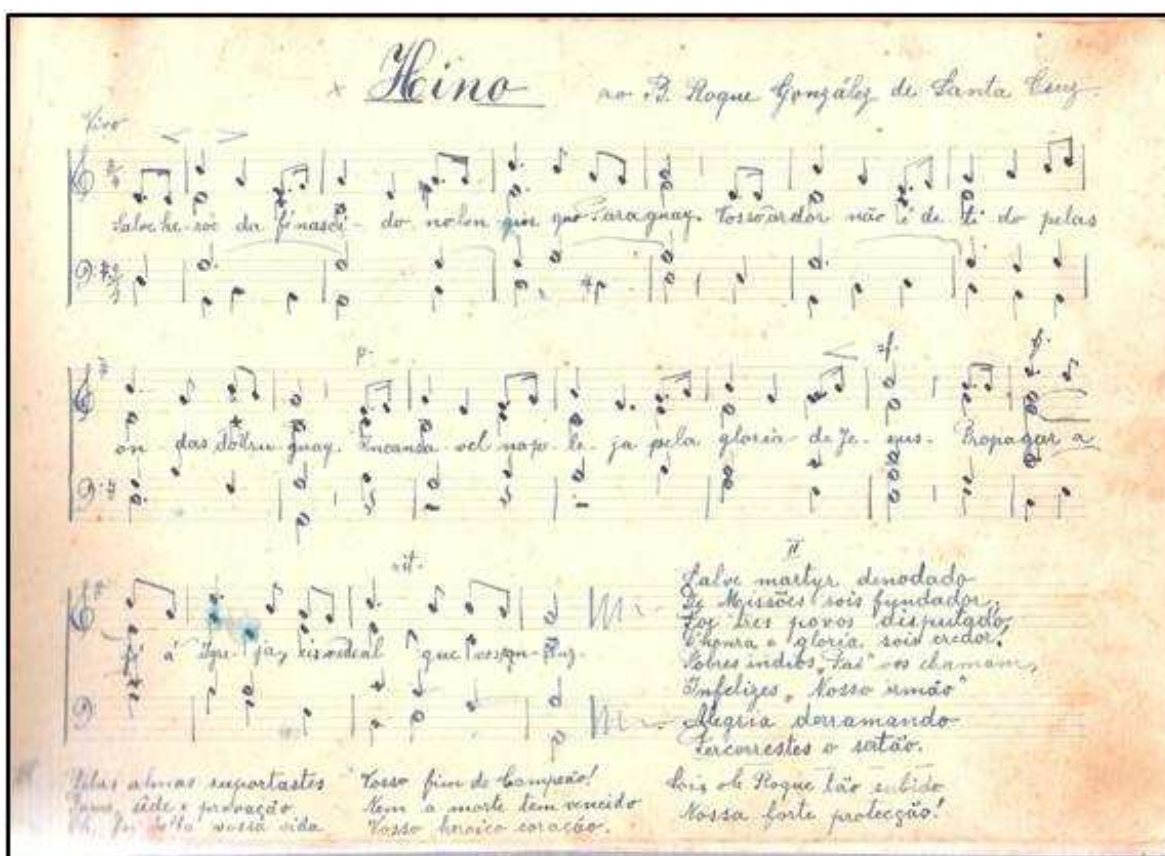 Hino ao B. Roque González de Santa Cruz
Vivo
Salve he-roe da fé nasci-do no lon gin quo Paraguay. Vosso ardor não é de ti do pelas
p.
sf. f.
on-das do Uru-guay. Incansa vel na pe-le-ja pela gloria de Je-sus. Propagar a
rit.
fé á Igre-ja, eis o ideal que vos con-duz.
II
Salve martyr denodado
De Missões sois fundador,
Foi tres povos disputado,
D'honra e gloria sois credor!
Pobres indios, "Pae" vos chamam,
Infelizes, "Nosso irmão"
Alegria derramando
Percorrestes o sertão.
Pelas almas suportastes
Fome, sêde e provação
vossa vida
Vosso fim de Campeão!
Nem a morte tem vencido
Vosso heroico coração.
Sois oh Roque tão subido
Nossa forte protecção!